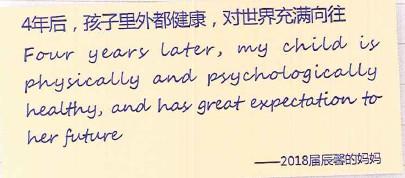 4年后，孩子里外都健康，对世界充满向往
Four years later, my child is
physically and psychologically
healthy, and has great expectation to
her future
——2018届辰馨的妈妈